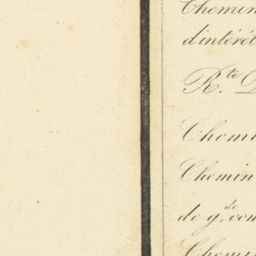 Chemin
d'intérêt
R.te D
Chemi
Chemin
de g.de com
Chemin